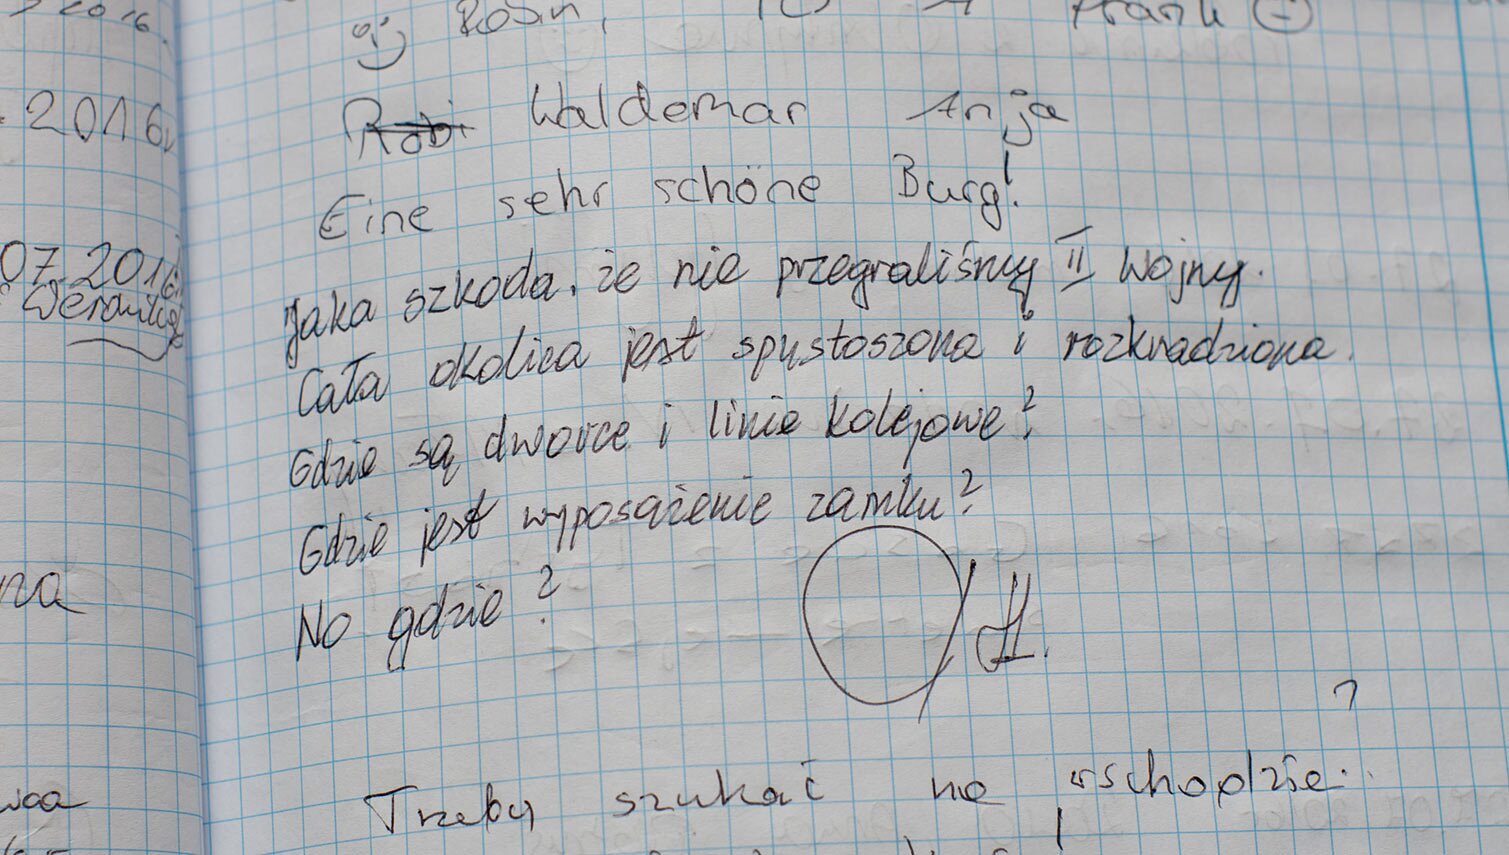 2016.
Robin, Frank
2016r
Robi Waldemar Anja
Eine sehr schöne Burg!
07.2016r.
Jaka szkoda, że nie przegraliśmy II Wojny.
Cała okolica jest spustoszona i rozkradziona.
Gdzie są dworce i linie kolejowe?
Gdzie jest wyposażenie zamku?
No gdzie?
?
Trzeby szukać na wschodzie..